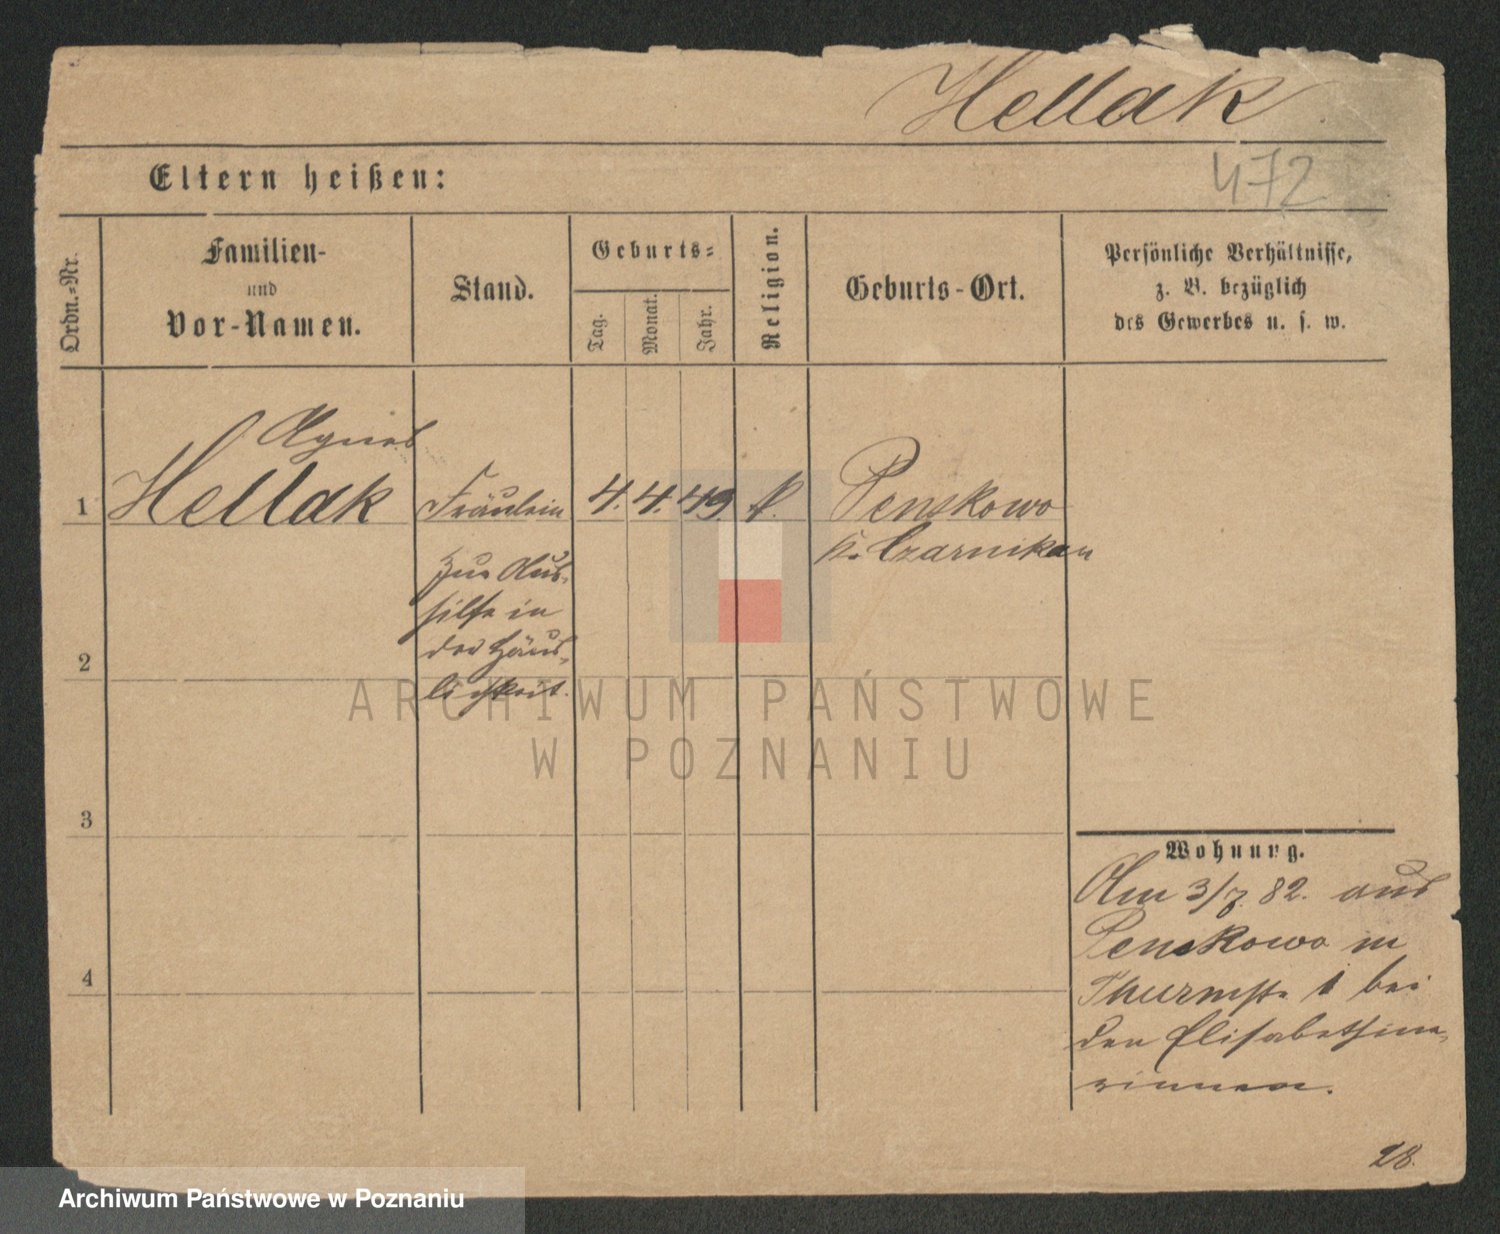 Hellak
472
Eltern heißen:
Ordn.-Nr.
Familien-
und
Vor-Namen.
Stand.
Geburts-
Tag.
Monat.
Jahr.
Religion.
Geburts-Ort.
Persönliche Verhältnisse,
z. B. bezüglich
des Gewerbes u. s. w.
Agnes
1 Hellak Fräulein 4. 4. 49. k. Penskowo
k. Czarnikau
zur Aus-
hilfe in
der Häus-
lichkeit.
2
3
4
Wohnung.
Am 3/7. 82. aus
Penskowo in
Thurmstr. 1 bei
den Elisabethine-
rinnen.
28.
ARCHIWUM PAŃSTWOWE
W POZNANIU
Archiwum Państwowe w Poznaniu